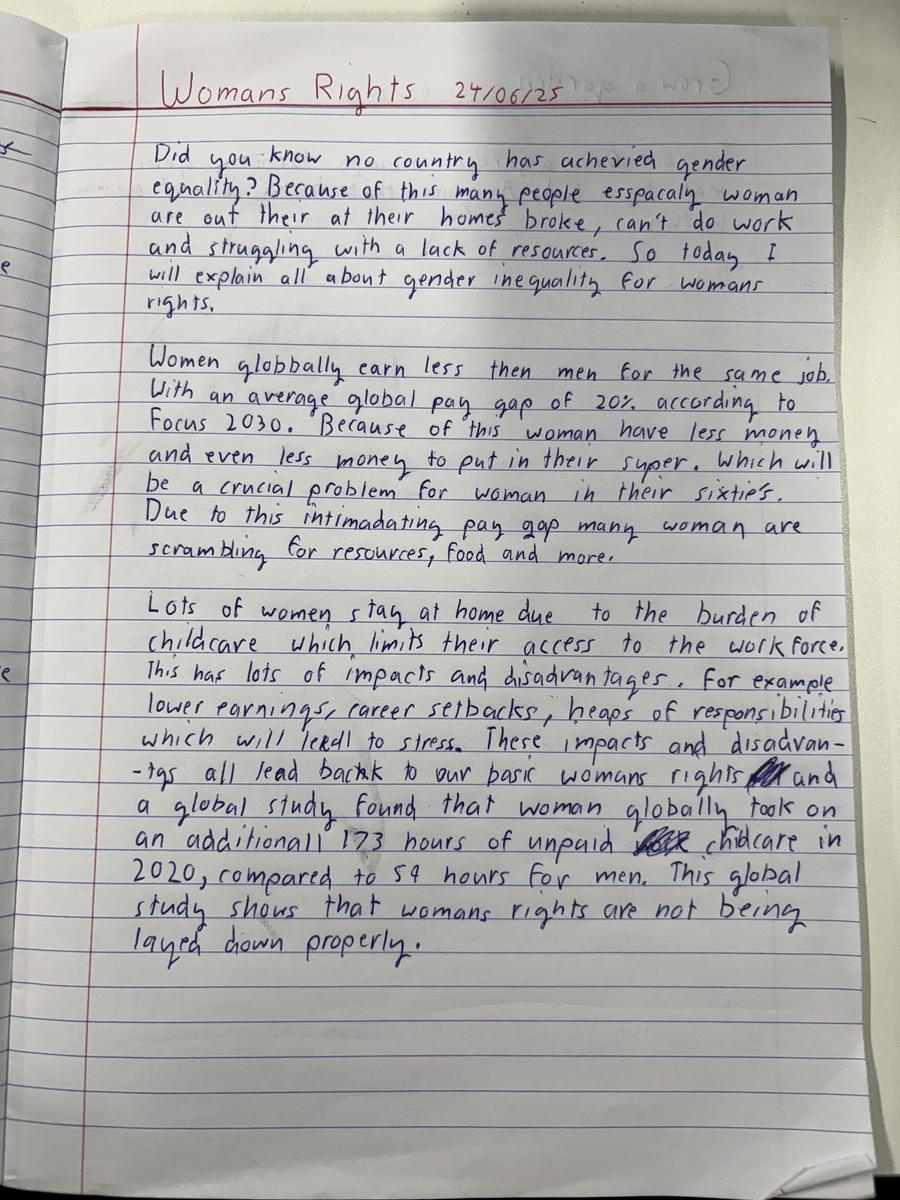 Womans Rights 24/06/25
Did you know no country has achevied gender
equality? Because of this many people esspacaly woman
are out their at their homes broke, can't do work
and struggling with a lack of resources. So today I
will explain all about gender inequality for womans
rights.
Women globbally earn less then men for the same job.
With an average global pay gap of 20% according to
Focus 2030. Because of this woman have less money
and even less money to put in their super. Which will
be a crucial problem for woman in their sixtie's.
Due to this intimadating pay gap many woman are
scrambling for resources, food and more.
Lots of women stay at home due to the burden of
childcare which limits their access to the workforce.
This has lots of impacts and disadvantages. For example
lower earnings, career setbacks, heaps of responsibilities
which will lead to stress. These impacts and disadvan-
-tgs all lead back to our basic womans rights and
a global study found that woman globally took on
an additionall 173 hours of unpaid chidcare in
2020, compared to 59 hours for men. This global
study shows that womans rights are not being
layed down properly.